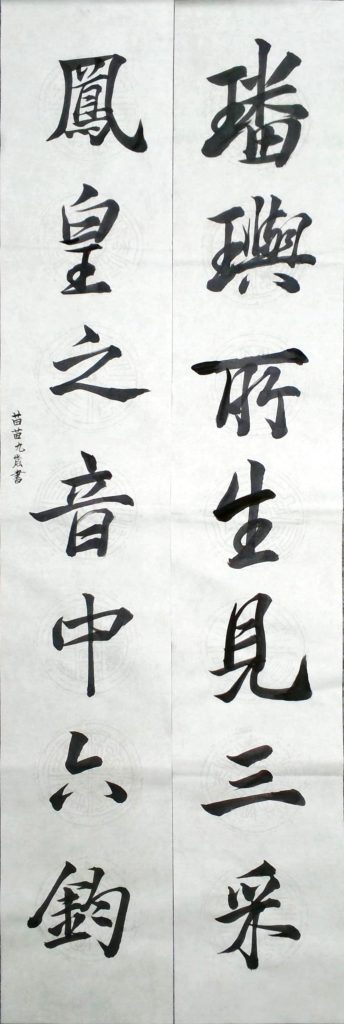 璠璵所生見三采
鳳皇之音中六鈞
苗苗九歲書